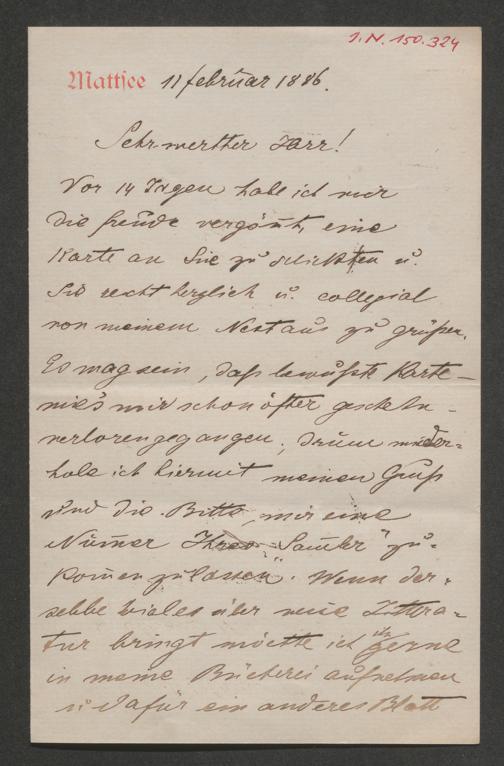 I.N. 150.324
Mattsee 11 februar 1886.
Sehr werther Herr!
Vor 14 Tagen habe ich mir
die freude vergönt, eine
Karte an Sie zu schicken u.
Sie recht herzlich u. collegial
von meinem Nest aus zu grüßen.
Es mag sein, daß bewußte Karte –
wie's mir schon öfter gescheh'n –
verlorengegangen; drum wieder=
hole ich hiermit meinen Gruß
und die Bitte, mir eine
Numer Ihres Samler" zu=
komen zu lassen". Wenn der=
selbe vieles über neue Littera=
tur bringt möchte ich ihn gerne
in meine Bücherei aufnehmen
u. dafür ein anderes Blatt